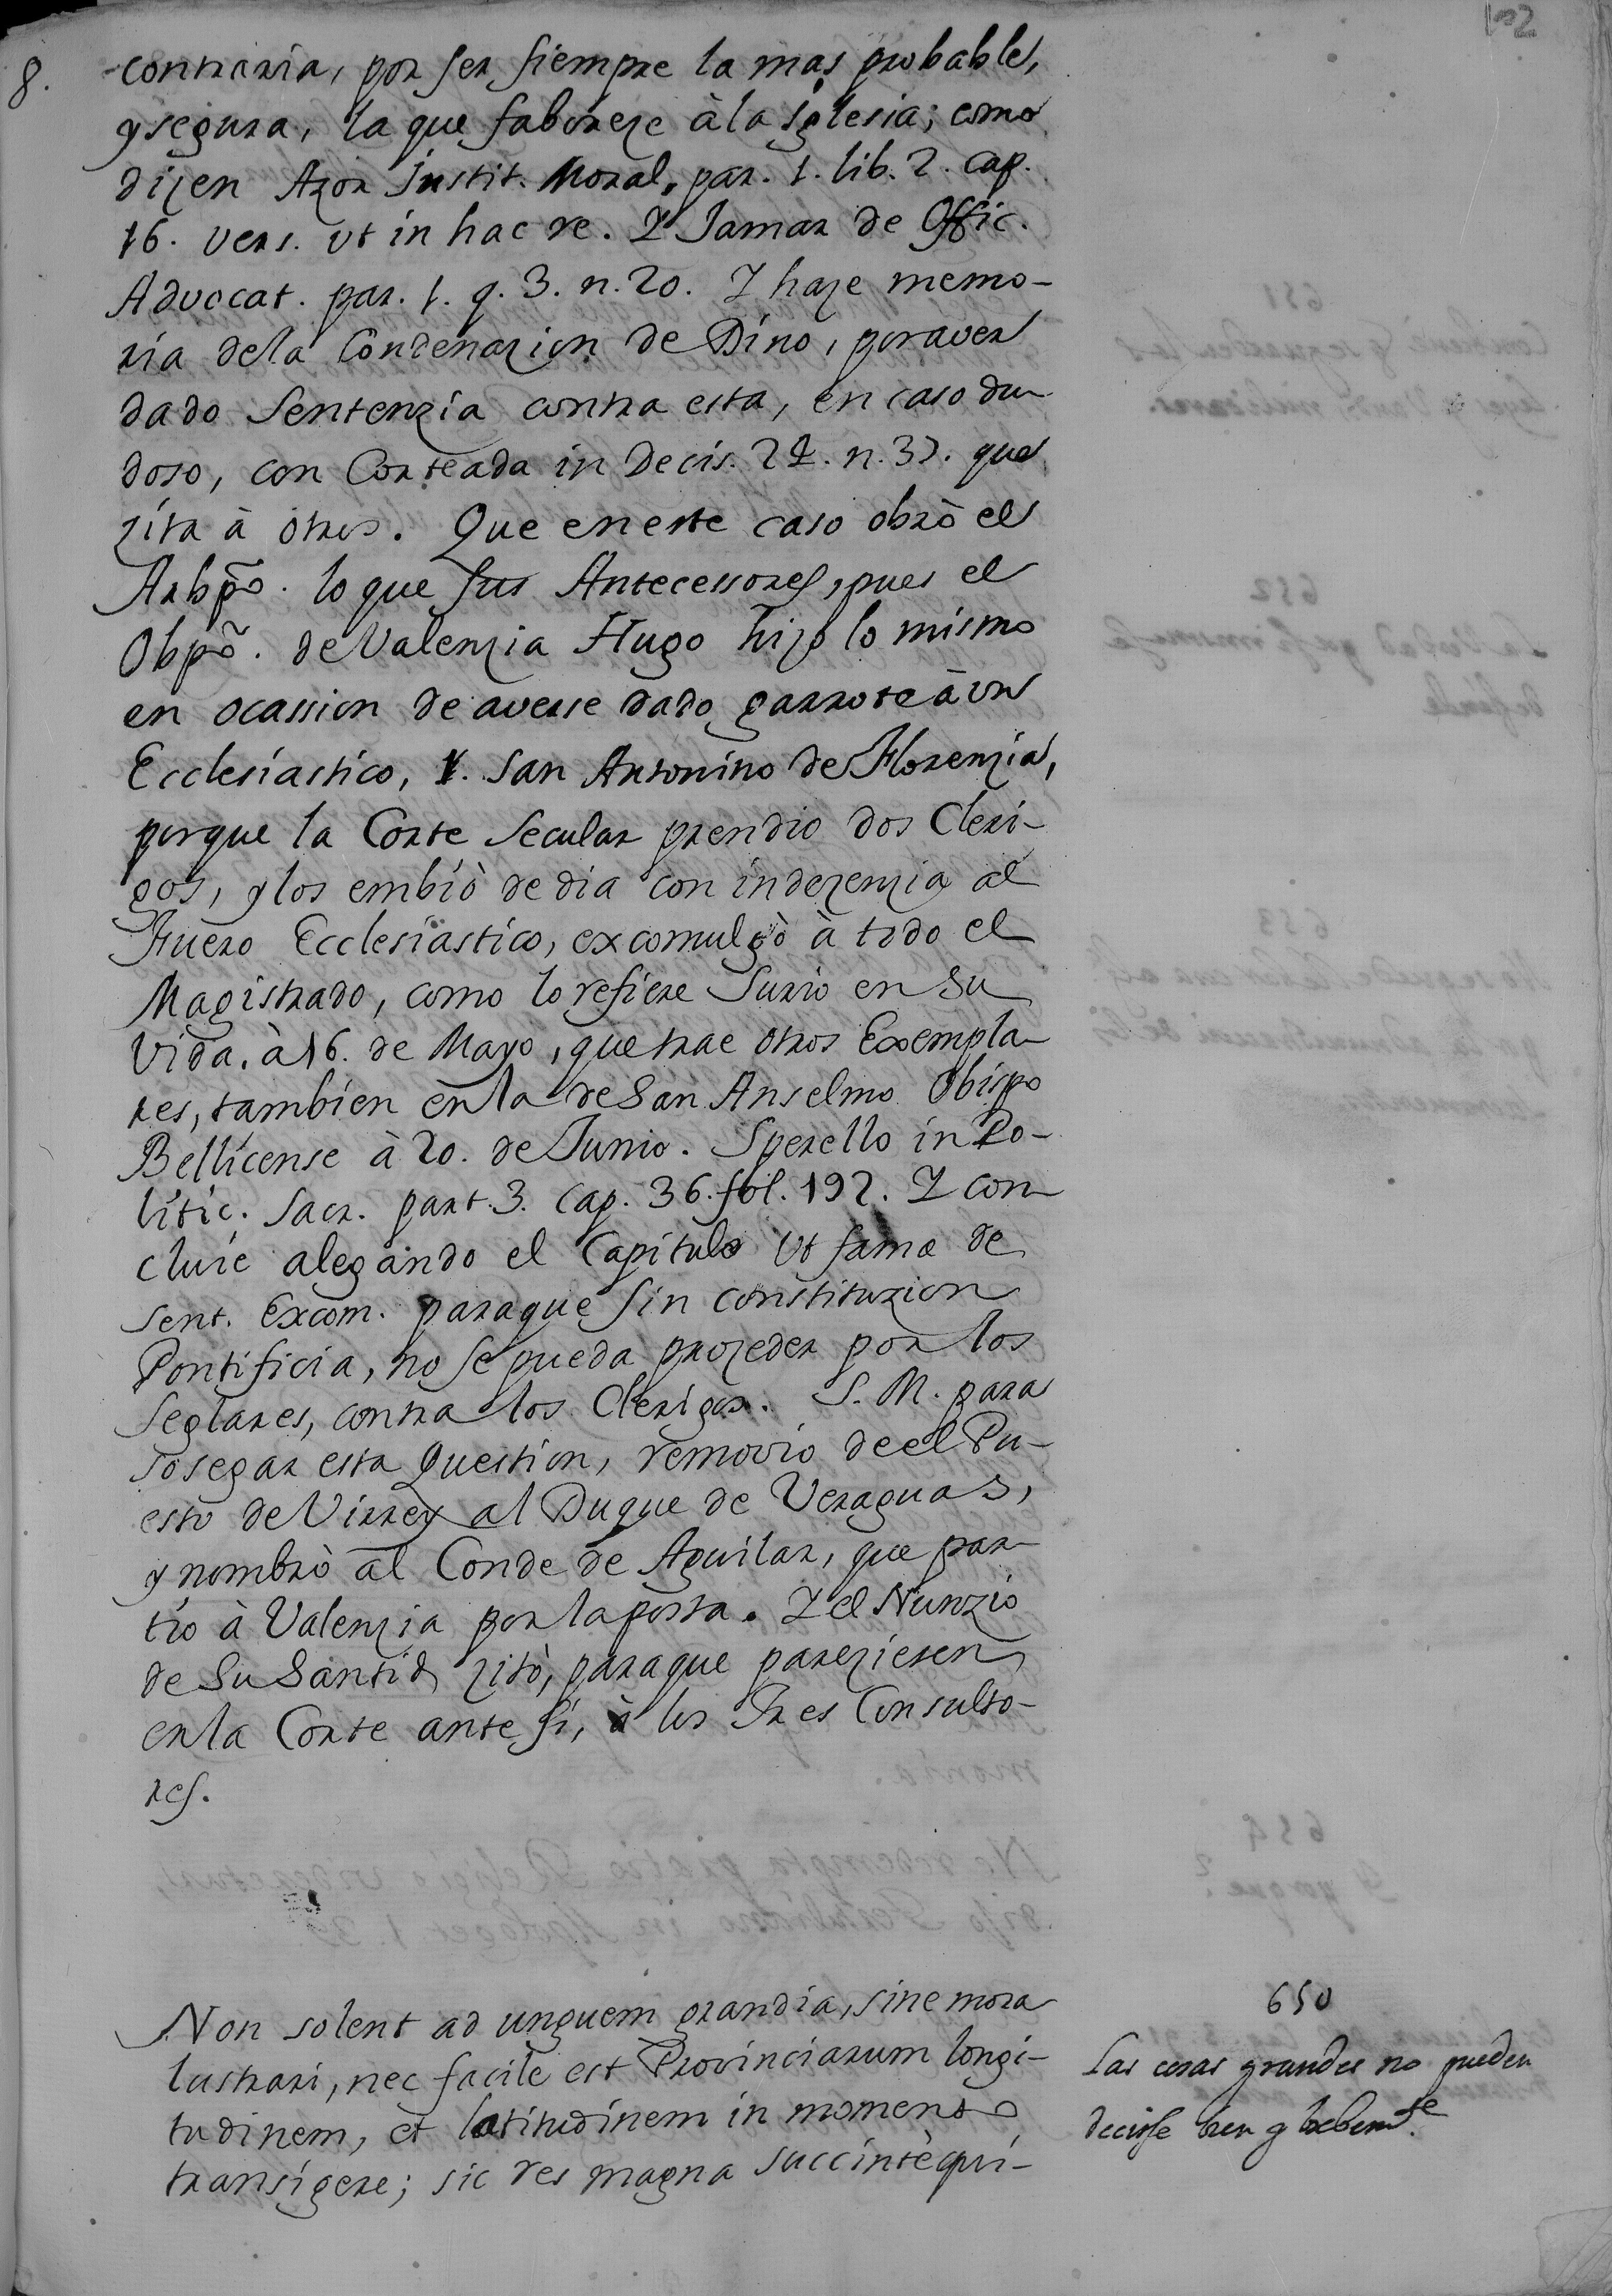 102
8.
contraria, por ser siempre la mas probable,
y segura, la que faboreze à la Iglesia; como
dizen Azor Instit. Moral. par. 1. lib. 2. cap.
16. vers. ut in hac re. Y Jamar de Offic.
Advocat. par. 1. q. 3. n. 20. Y haze memo-
ria dela Condenazion de Dino, por aver
dado Sentenzia contra esta, en caso du-
doso, con Corteada in Decis. 22. n. 32. que
zita à otros. Que en este caso obrò el
Arbpõ. lo que sus Antecessores, pues el
Obpõ. de Valenzia Hugo hizo lo mismo
en ocassion de averse dado garrote à un
Ecclesiastico, Y. San Antonino de Florenzia,
porque la Corte Secular prendio dos Cleri-
gos, y los embiò de dia con indezenzia al
Fuero Ecclesiastico, excomulgò à todo el
Magistrado, como lo refiere Surio en su
Vida. à 16. de Mayo, que trae otros Exempla-
res, tambien en la de San Anselmo Obispo
Bellicense à 20. de Junio. Sperello in Po-
litic. Sacr. part. 3. cap. 36. fol. 192. Y con-
cluie alegando el Capitulo Ut famæ de
sent. Excom. paraque sin constituzion
Pontificia, no se pueda prozeder por los
Seglares, contra los Clerigos. S. M. para
sosegar esta Question, removio de el Pu-
esto de Virrey al Duque de Veraguas,
y nombrò al Conde de Aguilar, que par-
tio à Valenzia por la posta. Y el Nunzio
de Su Santid zitò, paraque pareziesen
en la Corte ante si, à los Tres Consulto-
res.
Non solent ad unguem grandia, sine mora
lustrari, nec facile est Provinciarum longi-
tudinem, et latitudinem in momento
transigere; sic res magna succintè qui-
650
Las cosas grandes no pueden
decirse bien y brebemte.